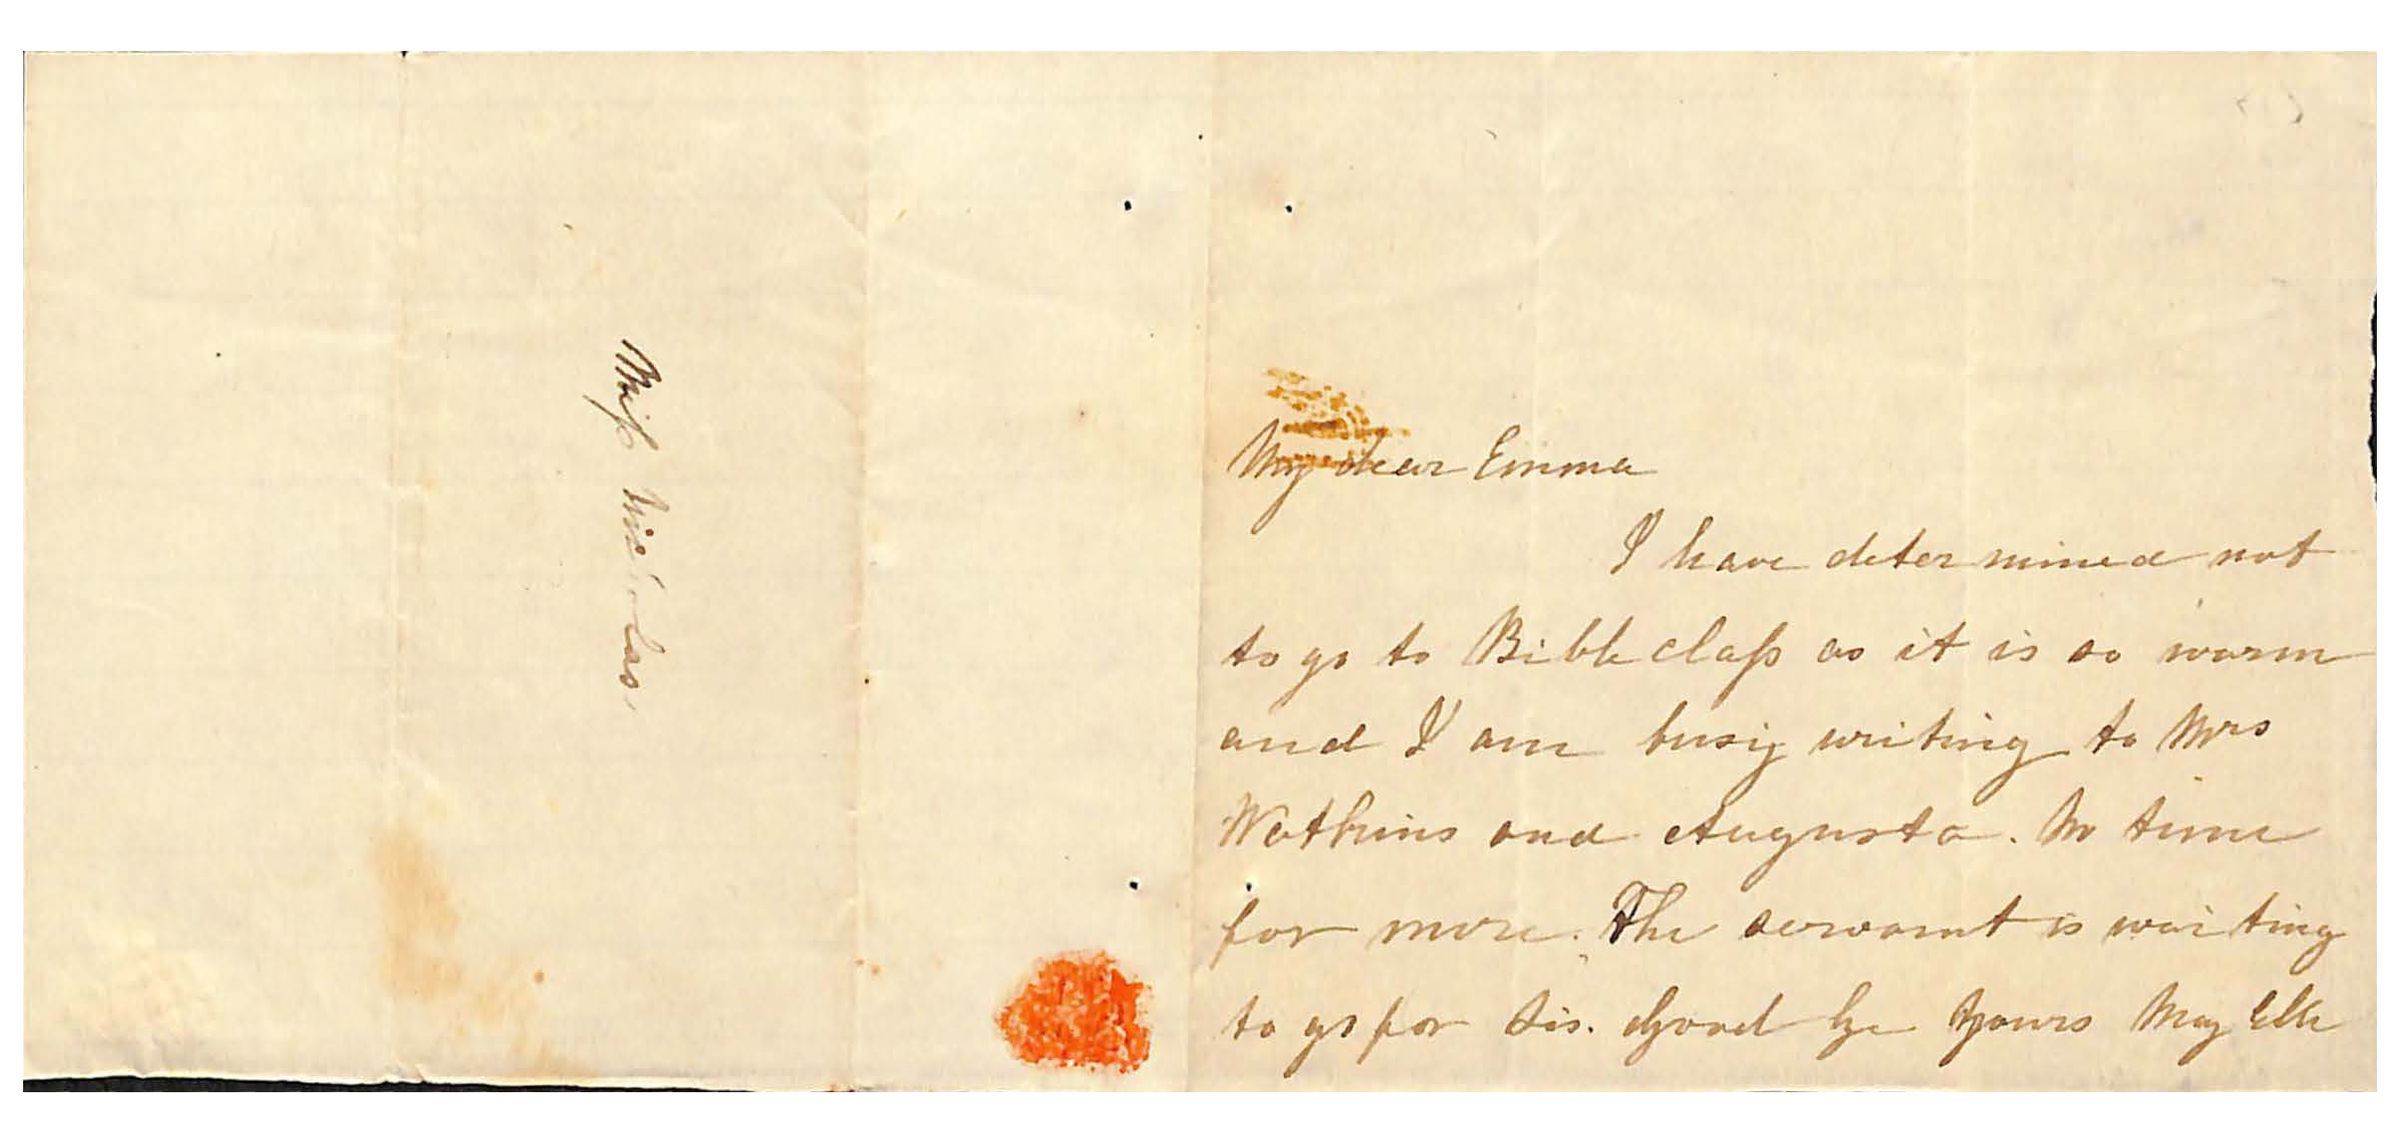 Miss Nicholas,
My dear Emma
I have determined not
to go to Bible class as it is so warm
and I am busy writing to Mrs
Watkins and Augusta. No time
for more. The servant is waiting
to go for Sis. Good by Yours